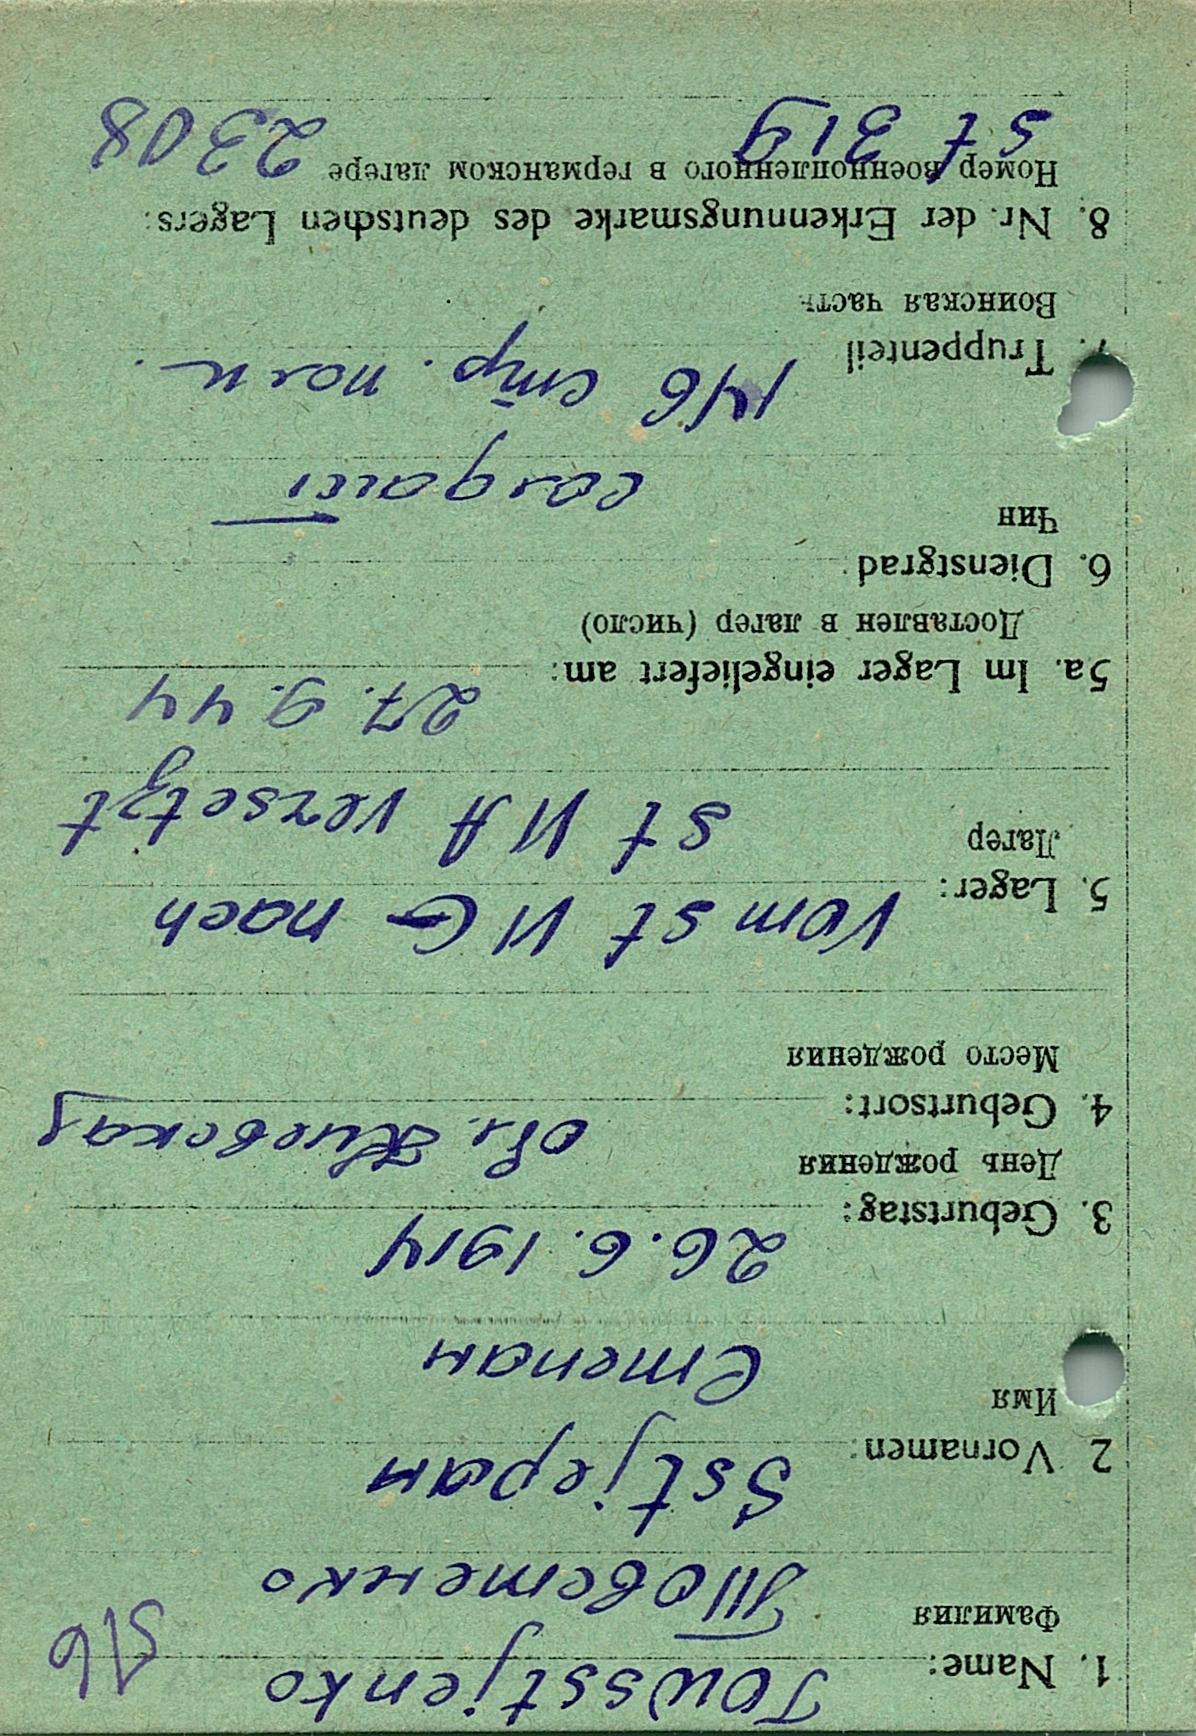 1. Name: Towsstjenko
Фамилия Товстенко 516
2 Vornamen: Sstjepan
Имя Степан
3. Geburtstag: 26.6.1914
День рождения
4. Geburtsort: обл. Киевская
Место рождения
5. Lager: Vom St VI G nach
Лагерь St VI A versetzt
5a. Im Lager eingeliefert am: 27.9.44
Доставлен в лагер (число)
6. Dienstgrad
Чин солдат
7. Truppenteil 146 стр. полк.
Воинская часть
8. Nr. der Erkennungsmarke des deutschen Lagers:
Номер военнопленного в германском лагере 2308
St 319